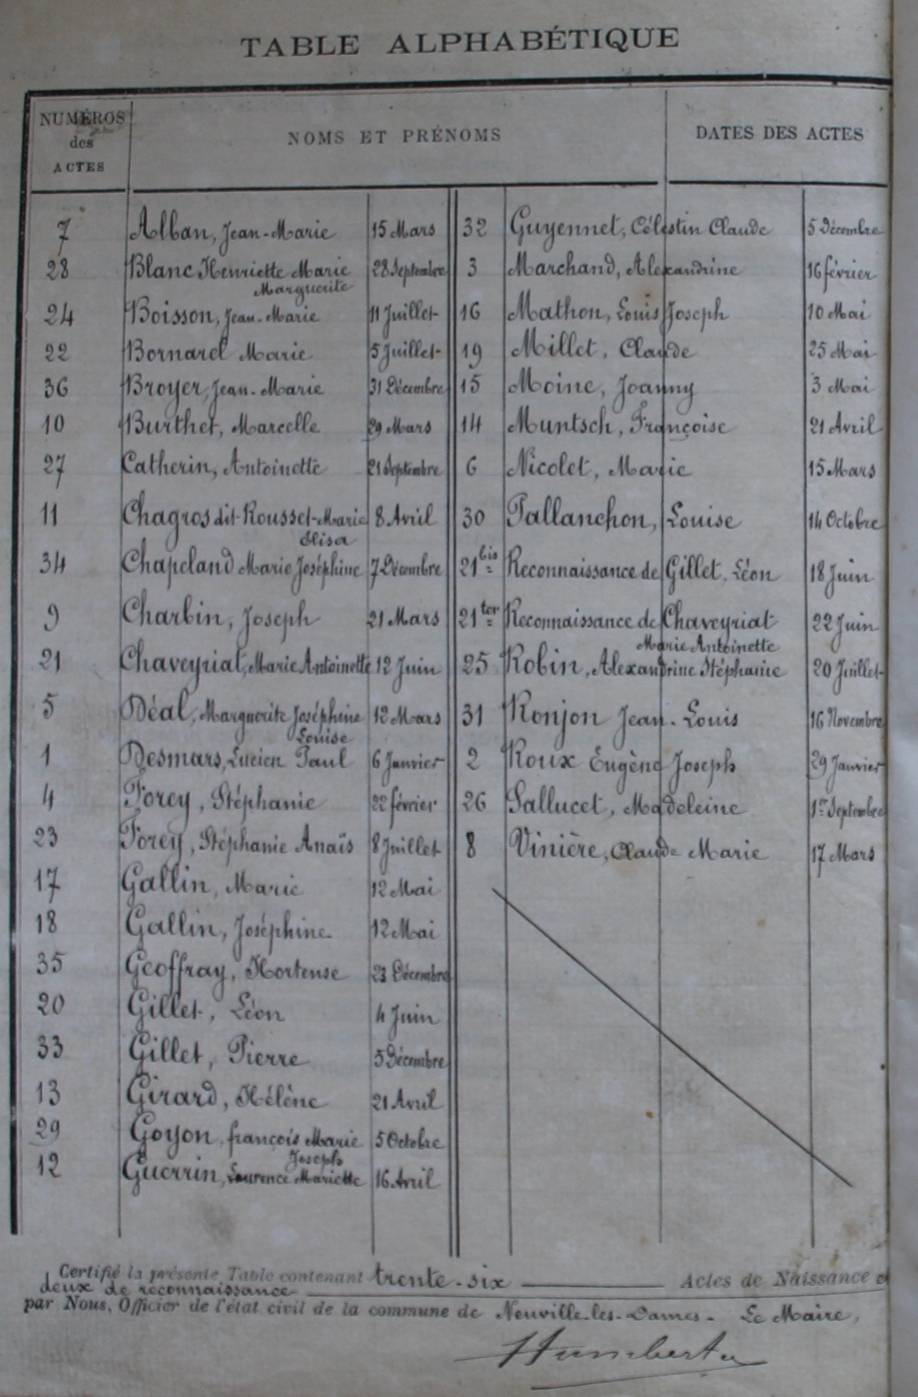 TABLE ALPHABÉTIQUE
NUMÉROS
des
ACTES
NOMS ET PRÉNOMS
DATES DES ACTES
7 Alban, Jean-Marie 15 Mars
28 Blanc Henriette Marie 28 Septembre
Marguerite
24 Boisson, Jean-Marie 11 Juillet
22 Bornarel Marie 5 Juillet
36 Broyer, Jean-Marie 31 Décembre
10 Burthet, Marcelle 29 Mars
27 Catherin, Antoinette 21 Septembre
11 Chagros dit Rousset-Marie 8 Avril
Elisa
34 Chapeland Marie Joséphine 7 Décembre
9 Charbin, Joseph 21 Mars
21 Chaveyriat, Marie Antoinette 12 Juin
5 Déal, Marguerite Joséphine 12 Mars
Louise
1 Desmars, Lucien Paul 6 Janvier
4 Forey, Stéphanie 22 février
23 Forey, Stéphanie Anaïs 8 Juillet
17 Gallin, Marie 12 Mai
18 Gallin, Joséphine 12 Mai
35 Geoffray, Hortense 23 Décembre
20 Gillet, Léon 4 Juin
33 Gillet, Pierre 5 Décembre
13 Girard, Hélène 21 Avril
29 Goyon, françois Marie 5 Octobre
Joseph
12 Guerrin, Laurence Mariette 16 Avril
32 Guyennet, Célestin Claude 5 Décembre
3 Marchand, Alexandrine 16 février
16 Mathon, Louis Joseph 10 Mai
19 Millet, Claude 25 Mai
15 Moine, Joanny 3 Mai
14 Muntsch, Françoise 21 Avril
6 Nicolet, Marie 15 Mars
30 Pallanchon, Louise 14 Octobre
21 bis Reconnaissance de Gillet, Léon 18 Juin
21 ter Reconnaissance de Chaveyriat 22 Juin
Marie Antoinette
25 Robin, Alexandrine Stéphanie 20 Juillet
31 Ronjon Jean-Louis 16 Novembre
2 Roux Eugène Joseph 29 Janvier
26 Sallucet, Madeleine 1er Septembre
8 Vinière, Claude Marie 17 Mars
Certifié la présente Table contenant trente-six Actes de Naissance et
deux de reconnaissance
par Nous, Officier de l'état civil de la commune de Neuville-les-Dames. Le Maire,
Humbert